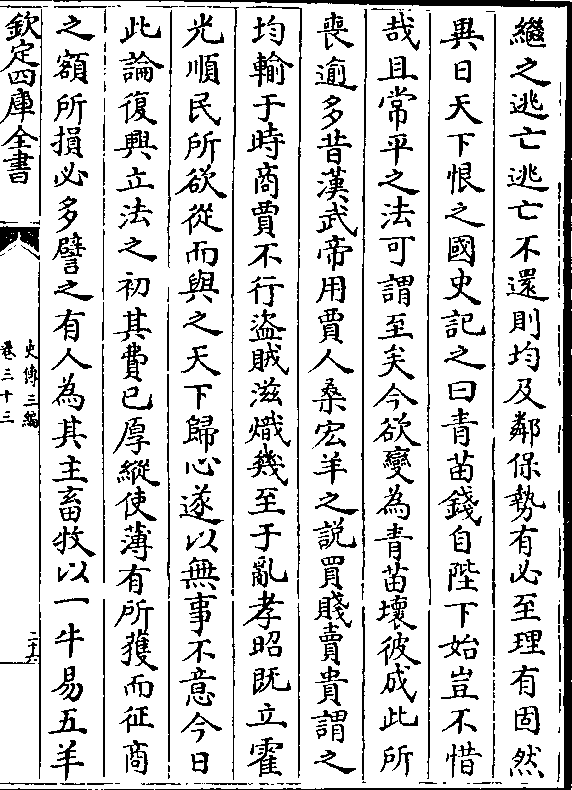 繼之逃亡逃亡不還則均及鄰保勢有必至理有固然
異日天下恨之國史記之曰青苗錢自陛下始豈不惜
哉且常平之法可謂至矣今欲變為青苗壞彼成此所
喪逾多昔漢武帝用賈人桑宏羊之説買賤賣貴謂之
均輸于時商賈不行盜賊滋熾幾至于亂孝昭既立霍
光順民所欲從而與之天下歸心遂以無事不意今日
此論復興立法之初其費已厚縱使薄有所獲而征商
之額所損必多譬之有人為其主畜牧以一牛易五羊
欽定四庫全書
史傳三編
卷三十三
二十六